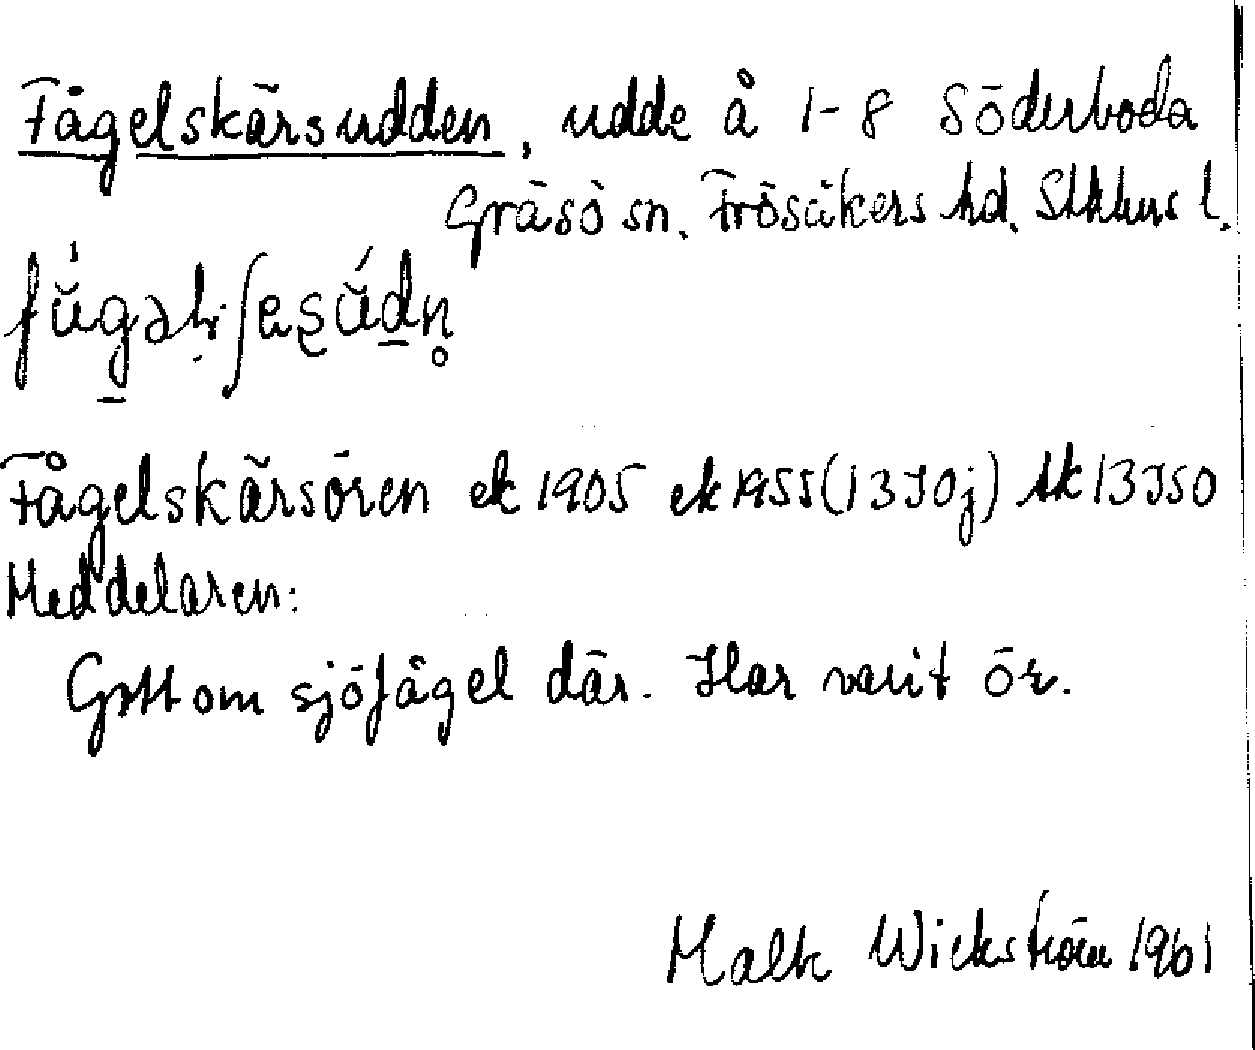 Fågelskärsudden, udde å 1-8 Söderboda
Gräsö sn. Frösåkers hd. Sthlms l.
Fågelskärsören ek 1905 ek 1955 (13J0j) tk 13JSO
Meddelaren:
Gott om sjöfågel där. Har varit ör.
Wickström 1961